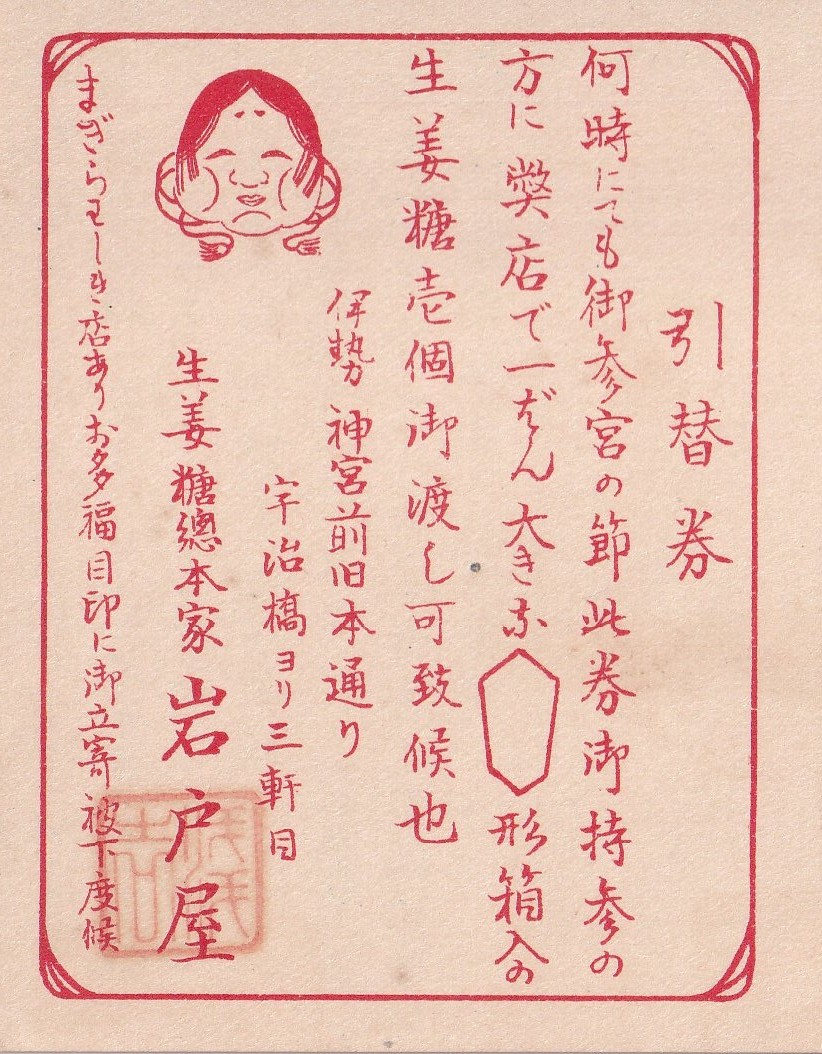 引替券
何時にても御参宮の節此券御持参の
方に弊店で一ばん大きな 形箱入の
生姜糖壱個御渡し可致候也
伊勢神宮前旧本通り
宇治橋ヨリ三軒目
生姜糖總本家 岩戸屋
まぎらわしき店ありお多福目印に御立寄被下度候